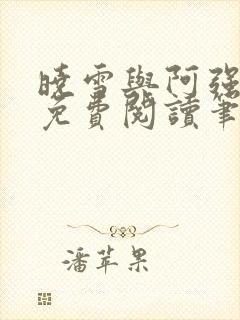 曉雪與阿強
免費閱讀筆
潘苹果